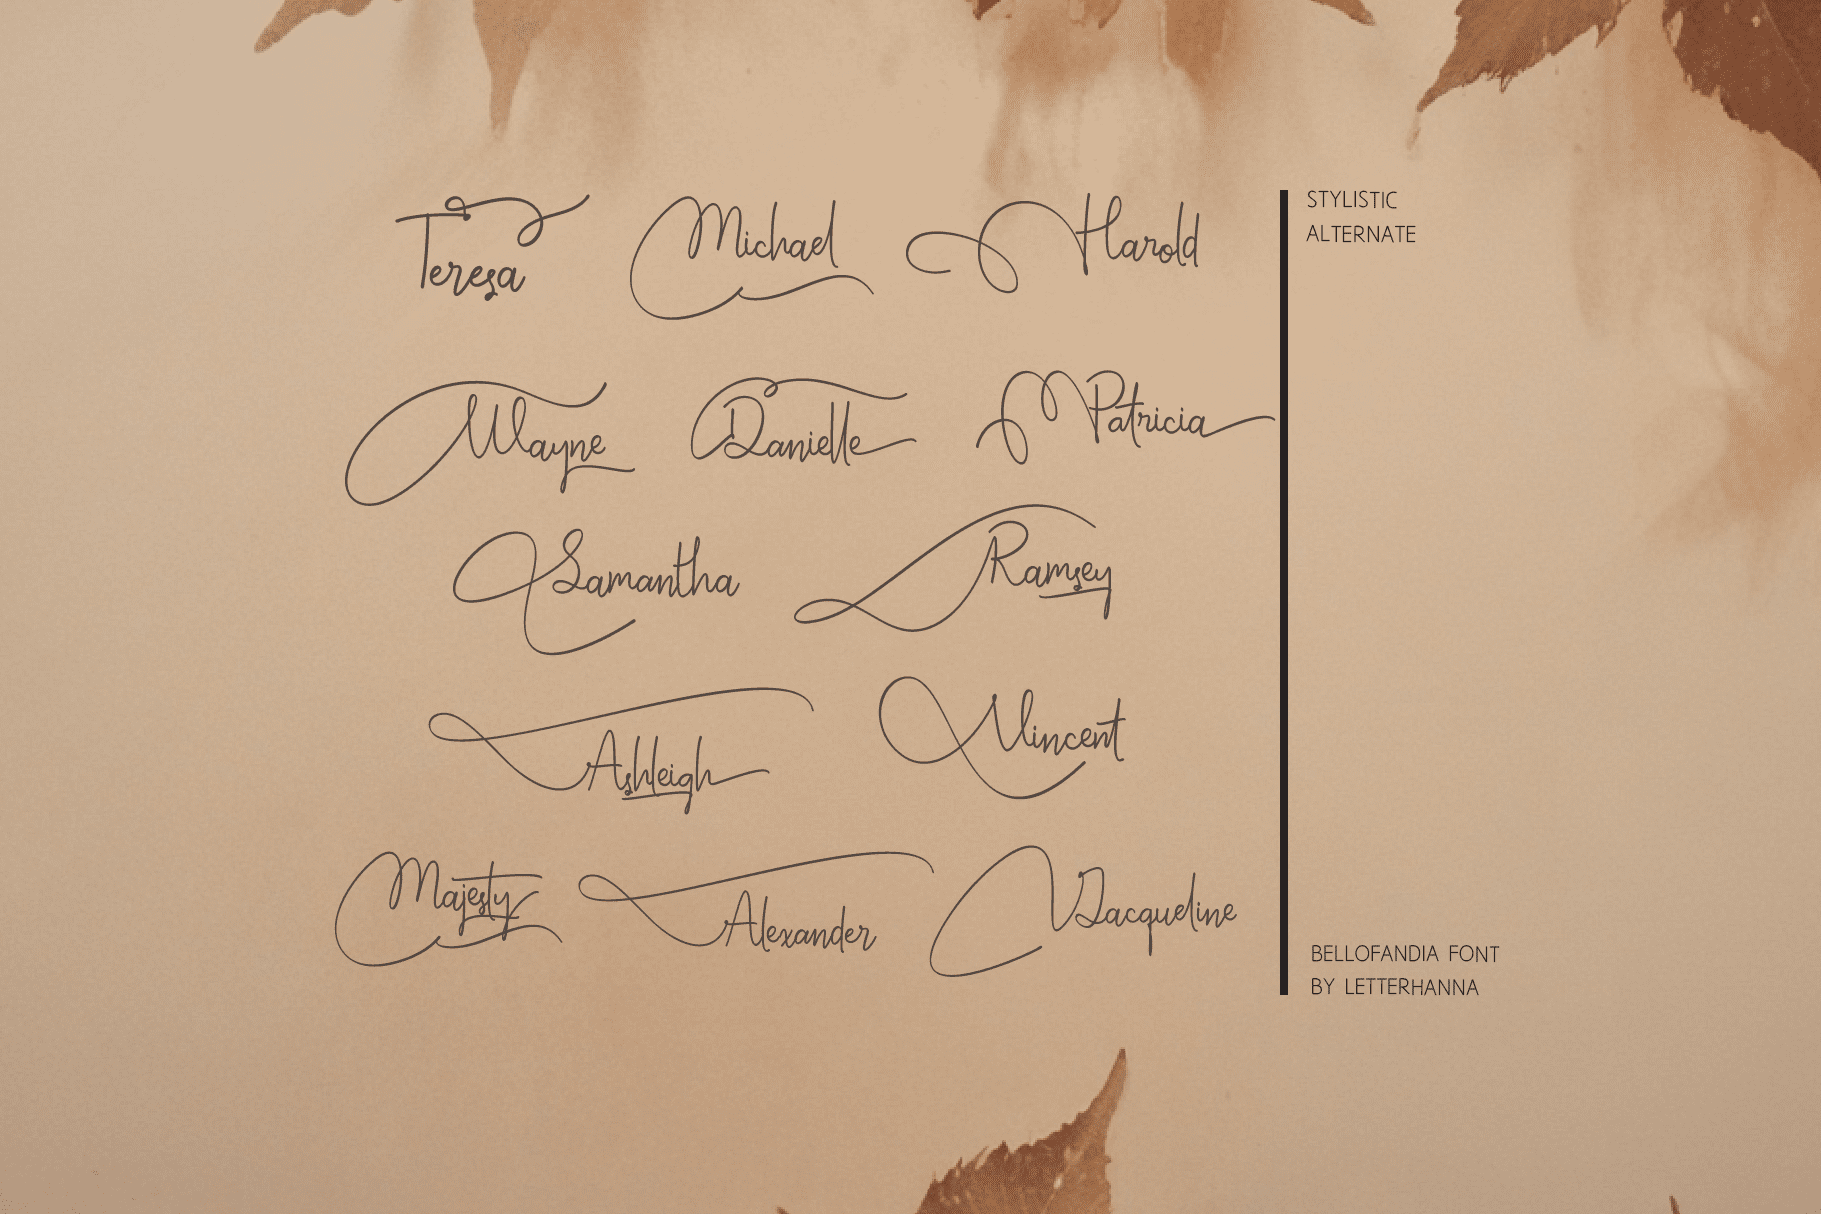 Teresa Michael Harold
Wayne Danielle Patricia
Samantha Ramsey
Ashleigh Vincent
Majesty Alexander Jacqueline
STYLISTIC
ALTERNATE
BELLOFANDIA FONT
BY LETTERHANNA